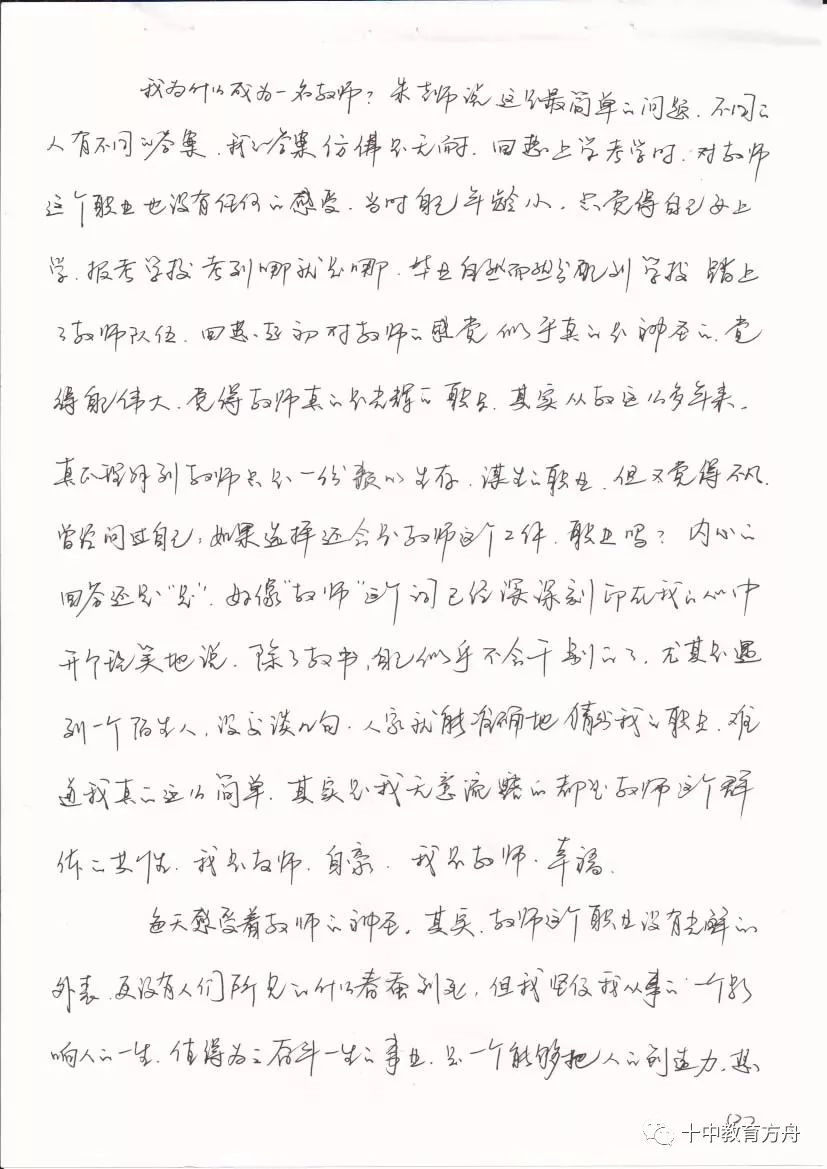 我为什么成为一名教师？朱老师说这是最简单的问题，不同的
人有不同的答案，我的答案仿佛是无向时，回想上学考学时，对教师
这个职业也没有任何的感受，当时自己年龄小，只觉得自己要上
学，报考学校考到哪就是哪，毕业自然而然分配到学校踏上
了教师队伍。回想起初对教师的感觉似乎真的是神圣的，觉
得配伟大，觉得教师真的是光辉的职业，其实从教这么多年来，
真正理解到教师只是一份赖以生存、谋生的职业，但又觉得不凡，
曾经问过自己，如果选择还会是教师这个工作、职业吗？内心的
回答还是“是”，好像“教师”这个词已经深深刻印在我的心中
开个玩笑地说，除了教书，自己似乎不会干别的了，尤其是遇
到一个陌生人，没交谈几句，人家就能准确地猜出我的职业，难
道我真的这么简单，其实是我无意流露的都是教师这个群
体的共性，我是教师，自豪，我是教师，幸福。
每天感受着教师的神圣，其实，教师这个职业没有光鲜的
外表，更没有人们所见的什么春蚕到死，但我坚信我从事的一个影
响人的一生，值得为之奋斗一生的事业，是一个能够把人的创造力、想
十中教育方舟